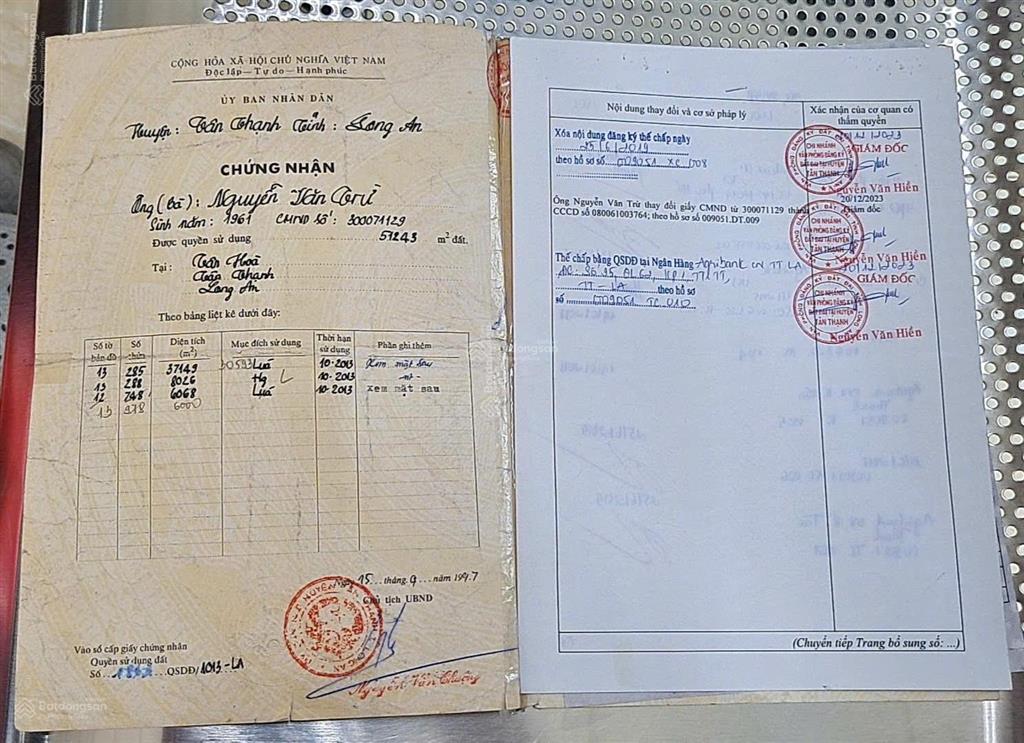 CỘNG HÒA XÃ HỘI CHỦ NGHĨA VIỆT NAM
Độc lập — Tự do — Hạnh phúc
ỦY BAN NHÂN DÂN
Huyện: Tân Thạnh Tỉnh: Long An
CHỨNG NHẬN
Ông (Bà): Nguyễn Văn Trừ
Sinh năm: 1961 CMND số: 300071129
Được quyền sử dụng 57243 m² đất.
Tại: Tân Hoà
Tân Thạnh
Long An
Theo bảng liệt kê dưới đây:
Số tờ bản đồ Số thửa Diện tích (m²) Mục đích sử dụng Thời hạn sử dụng Phần ghi thêm
13 285 37149 30593 Luá 10-2013 Xem mặt sau
13 288 8026 Hg 10-2013
12 748 6068 Luá 10-2013 xem mặt sau
13 6000
15 tháng 9 năm 1997
Chủ tịch UBND
Nguyễn Văn Thuộng
Vào sổ cấp giấy chứng nhận
Quyền sử dụng đất
Số QSDĐ/1013-LA
Nội dung thay đổi và cơ sở pháp lý
Xác nhận của cơ quan có thẩm quyền
Xóa nội dung đăng ký thế chấp ngày
25/6/2019
theo hồ sơ số 009051 XC 008
12/2023
GIÁM ĐỐC
CHI NHÁNH
VĂN PHÒNG ĐĂNG KÝ
ĐẤT ĐAI TẠI HUYỆN
TÂN THẠNH
Nguyễn Văn Hiền
Ông Nguyễn Văn Trừ thay đổi giấy CMND từ 300071129 thành
CCCD số 080061003764; theo hồ sơ số 009051.DT.009
20/12/2023
Giám đốc
CHI NHÁNH
VĂN PHÒNG ĐĂNG KÝ
ĐẤT ĐAI TẠI HUYỆN
TÂN THẠNH
Nguyễn Văn Hiền
Thế chấp bằng QSDĐ tại Ngân Hàng Agribank CN TT LA
ĐC: Số 35, ĐL 62, KP1, TT TT,
TT - LA theo hồ sơ
số 009051 TC 010
12/2023
GIÁM ĐỐC
CHI NHÁNH
VĂN PHÒNG ĐĂNG KÝ
ĐẤT ĐAI TẠI HUYỆN
TÂN THẠNH
Nguyễn Văn Hiền
(Chuyển tiếp Trang bổ sung số: ...)
Batdongsan